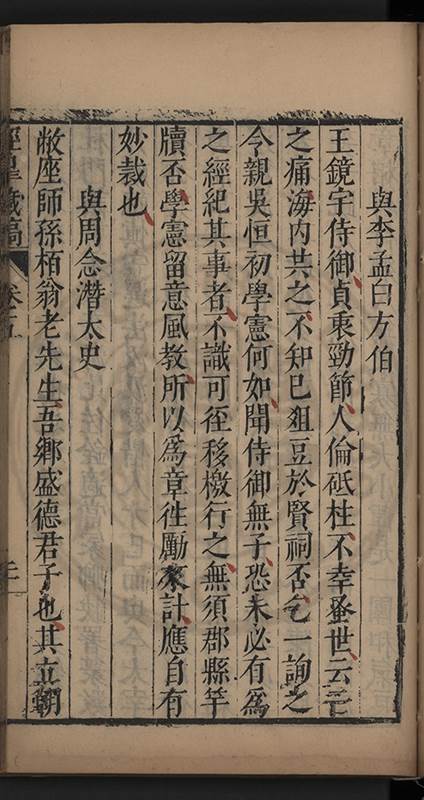 與李孟白方伯
王鏡宇侍御貞秉勁節人倫砥柱不幸蚤世云亡
之痛海内共之不知已俎豆於賢祠否乞一詢之
令親吳恒初學憲何如聞侍御無子恐未必有為
之經紀其事者不識可徑移檄行之無須郡縣竿
牘否學憲留意風教所以為章往勵來計應自有
妙裁也
與周念潛太史
敝座師孫栢翁老先生吾鄉盛德君子也其立朝
卷五